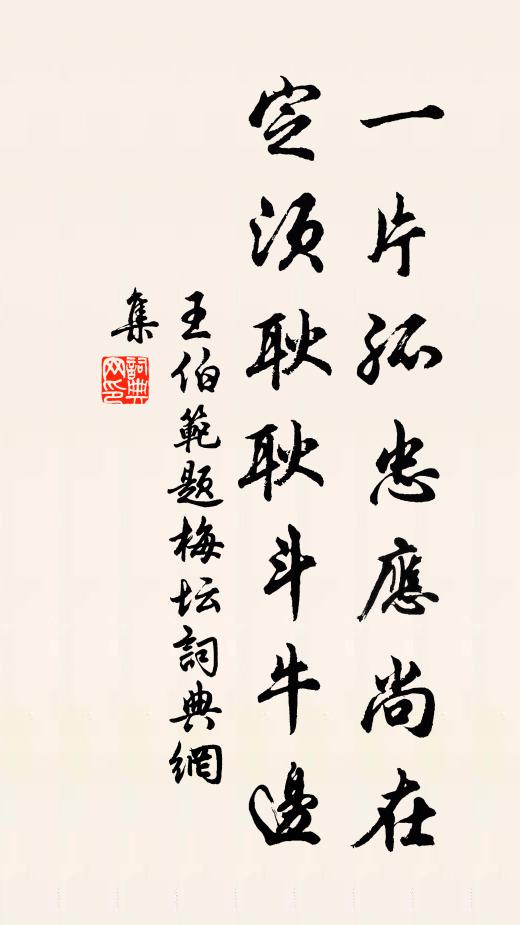 一片孤忠應尚在
定須耿耿斗牛邊
王伯範题梅坛詞典網
集
詞典網印